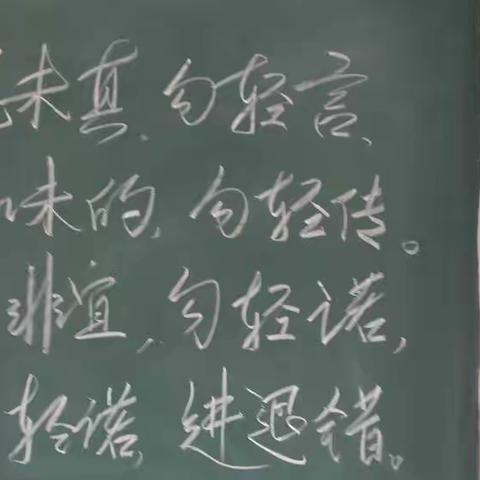 未真、勿轻言、
未的,勿轻传。
非宜,勿轻诺,
轻诺,进退错。